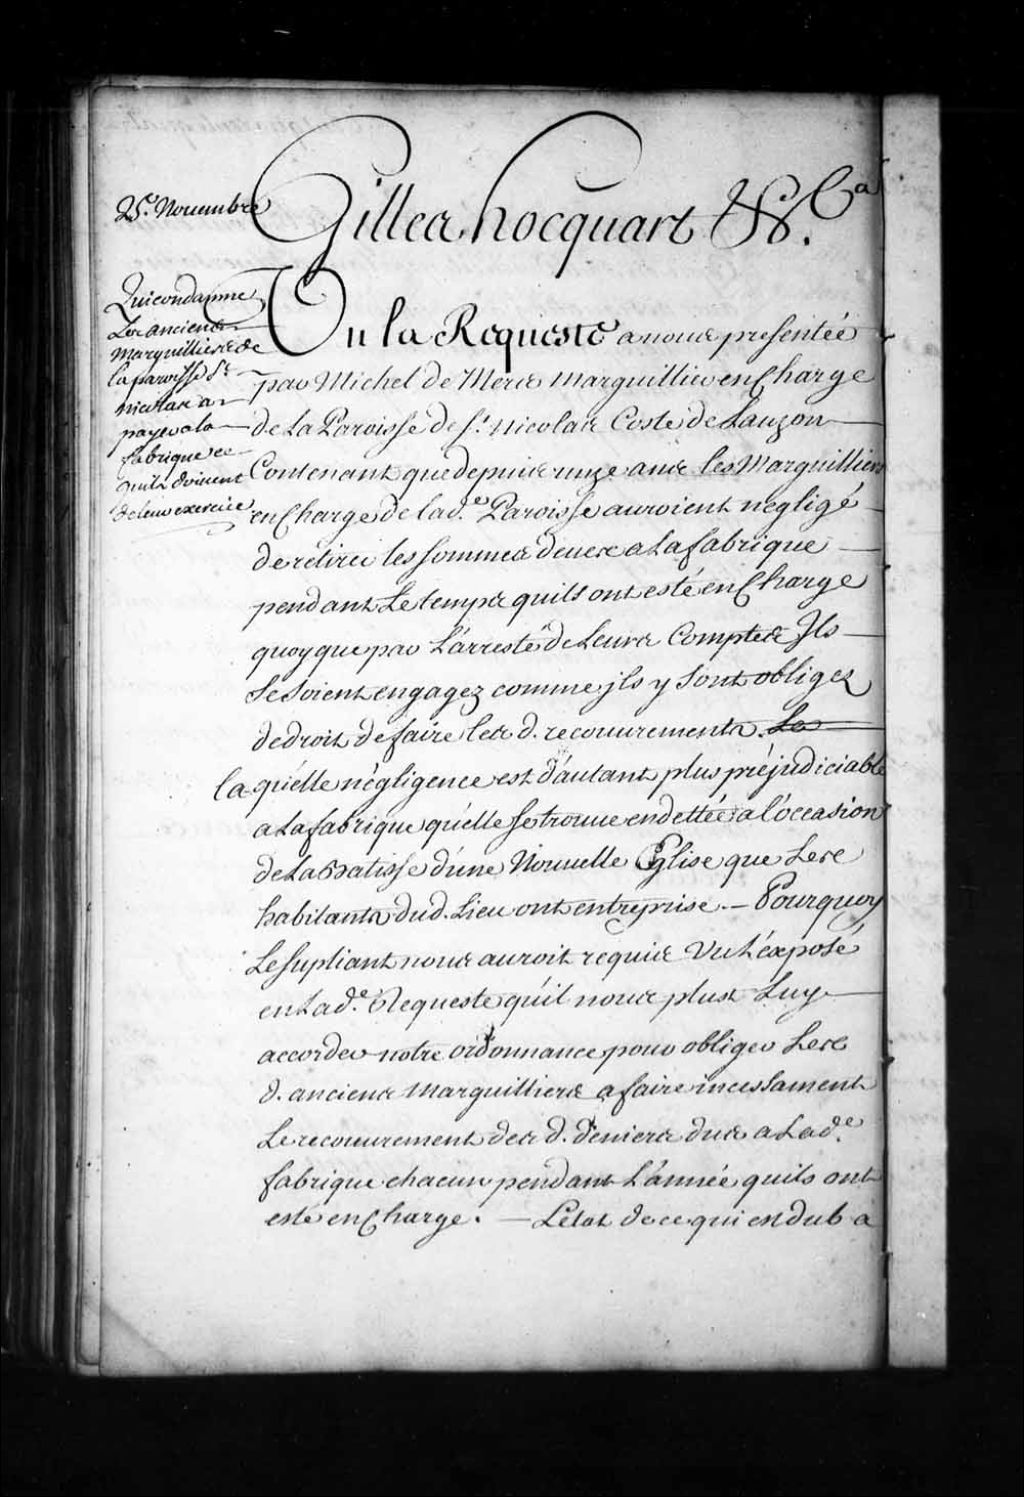 25e. Nouembre
Gilles hocquart &c.a
Qui condamne
Les anciens
Marguilliers de
la paroisse St.
nicolas a
payer a la
fabrique ce
quils doiuent
de leur exercice
Vu la Requeste a nous presentée
par Michel de Mers marguillier en Charge
de La Paroisse de St. Nicolas Coste de Lauzon
Contenant que depuis unze ans les Marguilliers
en Charge de lade. Paroisse auroient negligé
de retirer les sommes deues a La fabrique
pendant Le temps quils ont esté en Charge
quoyque par L'arresté de Leurs Comptes Ils
se soient engagez comme jls y sont obligez
de droit de faire les d. recouurements. Le
la quélle négligence est d'autant plus préjudiciable
a La fabrique quélle se trouue endettée a l'occasion
de La Batisse d'une Nouuelle Eglise que Les
habitants dud. Lieu ont entreprise. — Pourquoy
Le supliant nous auroit requis Vu L'exposé
en Lade. Requeste qu'il nous plust Luy
accorder notre ordonnance pour obliger Les
d. anciens Marguilliers a faire incessament
Le recouurement des d. deniers dus a Lade.
fabrique chacun pendant L'année quils ont
esté en Charge. — L'etat de ce qui est dub a